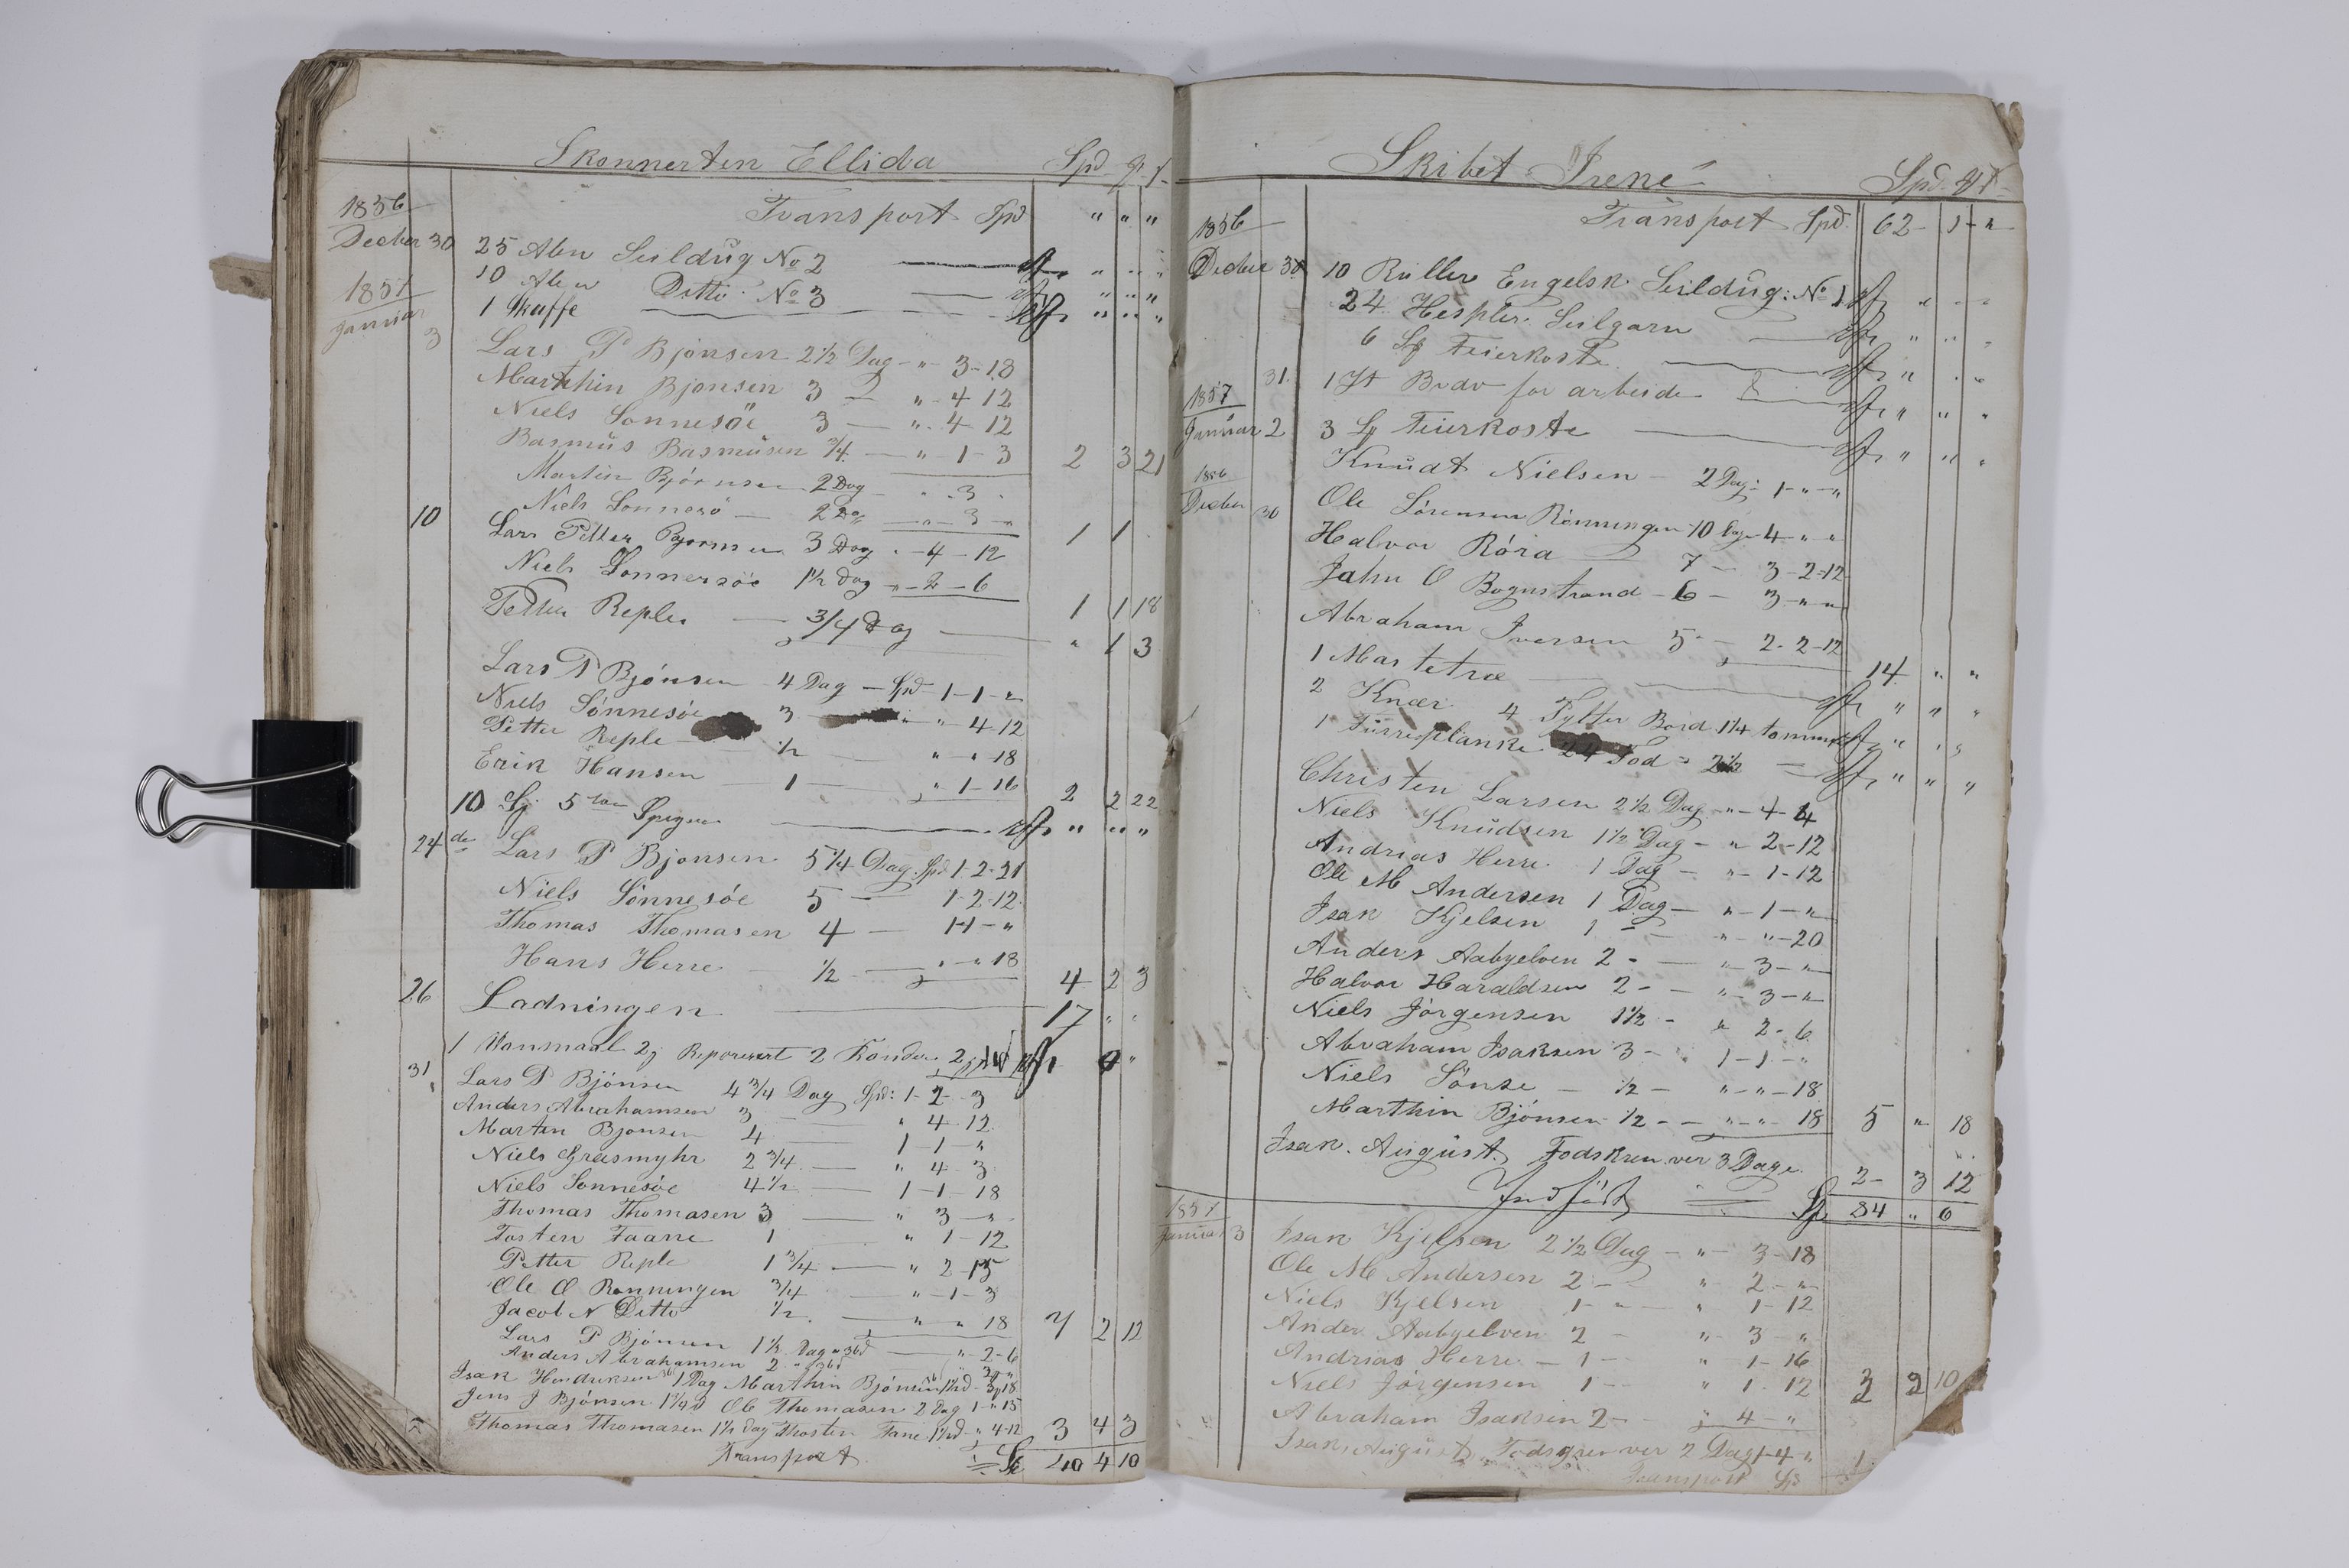 Skonnerten Ellida Spd
1856 Transport Spd " " "
Decber 30 25 Alen Seildug No 2 " " "
10 Alen Ditto No 3 " " "
1857 1 Skaffe " " "
Januar 3 Lars P Bjónsen 2 1/2 Dag - " 3 - 18
Marthin Bjonsen 3 - " - 4 12
Niels Sonnesöe 3 - " - 4 - 12
Rasmus Rasmusen 3/4 - " - 1 - 3 2 3 21
Martin Björnsen 2 Dag - " 3 "
10 Niels Sonnesö - 2 Dag - " - 3 - " 1 1
Lars Petter Bjornsen 3 Dag " - 4 - 12
Niels Sonnersöe 1 1/2 Dag - " - 2 - 6 1 1 18
Petter Reple 3/4 Dag " 1 3
Lars P Bjónsen 4 Dag - Spd 1 - 1 - "
Niels Sónnesóe 3 " 4 - 12
Petter Reple 1/2 " " 18
Erik Hansen - 1 - " 1 - 16 2 2 22
10 5 Spiger " " "
24 de Lars P Bjonsen 5 1/4 Dag Spd 1 - 2 - 21
Niels Sónnesóe 5 - 1 - 2 - 12
Thomas Thomasen 4 - 1 - 1 - "
Hans Herre 1/2 " - " 18 4 2 3
26 Ladningen 17 " "
1 2 2
31 Lars P Bjónsen 4 3/4 Dag Spd: 1 - 2 - 3
Anders Abrahamsen 3 " 4 - 12
Marten Bjonsen 4 - 1 - 1 - "
Niels Grasmyhr 2 3/4 - " 4 - 3
Niels Sonnesóe 4 1/2 - 1 - 1 - 18
Thomas Thomasen 3 - " 3 - "
Tosten Faane 1 - " 1 - 12
Petter Reple 1 3/4 - " 2 - 15
Ole O Ronningen 3/4 - " - 1 - 3
Jacob N Ditto 1/2 - " " 18 7 2 12
Lars P Bjónsen 1 1/2 Dag " - 2 - 6
Anders Abrahamsen 2
Isak Hendriksen 1 Dag Marthin Bjónsen
Jens J Bjónsen Ole Thomasen 2 Dag
Thomas Thomasen 1 1/2 Dag Thosten Fane " 4 - 12 3 4 3
Transport 40 4 10
Skibet Irene Spd
1856 Transport Spd 62 - 1 - "
Decber 30 10 Ruller Engelsk Seildug: No 1 " " "
24 Hespler Seilgarn " " "
6 Feierkoste " " "
31. for arbeide " " "
1857
Januar 2 3 Feierkoste " " "
1856 Knudt Nielsen - 2 Dag: 1 - " - "
Decber 30 Ole Sórensen Rönningen - 10 4 - " - "
Halvor Róra 7 - 3 - 2 - 12
Jahn O Rognstrand - 6 - 3 - " - "
Abraham Iversen 5 - 2 - 2 - 12 14 " "
1 Mastetræ " " "
2 Knæer 4 Tylter Bord 1 1/4 tomme " " "
1 Furreplanke 24 Fod 2 1/2 " " "
Christen Larsen 2 1/2 Dag - " - 4 - 4
Niels Knudsen 1 1/2 Dag - " 2 - 12
Andrias Herre 1 Dag - " - 1 - 12
Ole M Andersen 1 Dag - " - 1 - "
Isak Kjelsen 1 - " - " - 20
Anders Aabyelven 2 - " - 3 - "
Halvor Haraldsen 2 - " - 3 - "
Niels Jórgensen 1 1/2 - " 2 - 6
Abraham Isaksen 3 - 1 - 1 - "
Niels Sónse - 1/2 - " - " - 18
Marthin Bjónsen 1/2 - " - " - 18 5 " 18
Isak August 3 Dage 2 - 3 12
Indfórt 84 " 6
1857
Januar 3 Isak Kjelsen 2 1/2 Dag - " - 3 - 18
Ole M Andersen 2 - " 2 - "
Niels Kjelsen 1 - " 1 - 12
Ander Aabyelven 2 - " 3 - "
Andrias Herre - 1 - " 1 - 16
Niels Jórgensen 1 - " 1 - 12 3 2 10
Abraham Isaksen 2 - " 4 - "
Isak August 2 Dag
Transport Spd